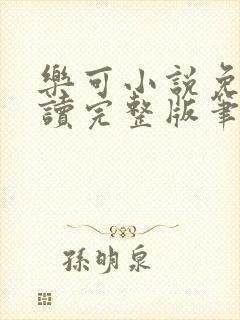 樂可小說免
讀完整版筆
孫明泉